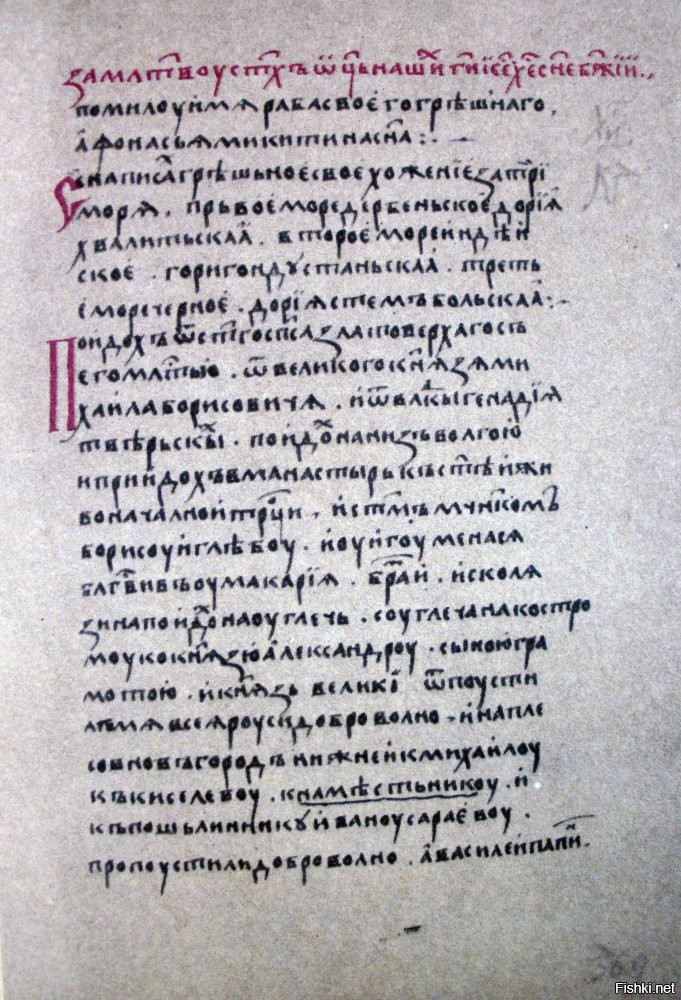 за млтвоу стхъ ѿць нашй ги їсе хе сне бжїй.,
помилоуй мѧ раба своего грѣшнаго.
афонасьѧ микитина сна:.
Написа грѣшьное свое хожение за трї
морѧ. прьвое море дербеньское дорїꙗ
хвалитьскаа. второе море индѣй
ское. горигондустаньскаа. треть
е море черное. дорїꙗ стемъбольскаа:.
Пойдохъ ѿ стго спса златоверхаго съ
его млтью. ѿ великого кнѧзѧ ми
хаила борисовичѧ. и ѿ влкы генадїꙗ
твѣрьскы. пойдо на низъ волгою
и прийдохъ в манастырь къ стѣй жи
воначалной трци. и стмъ мчнкомъ
борису и глѣбоу. и оу игоумена сѧ
блгвивъ оу макарїꙗ. братй. и с колѧ
зина пойдо на оуглечь. с оуглеча на костро
моу ко кнѧзю александроу. с ыною гра
мотою. и кнѧзь великї ѿпоусти
лъ мѧ всеѧ роуси доброволно. и на пле
со в новъгородъ нижней к михайлоу
къ киселевоу. к намѣстьникоу. и
къ пошьлиннику иваноу сараевоу.
пропоустили доброволно. а василей папи
Fishki.net